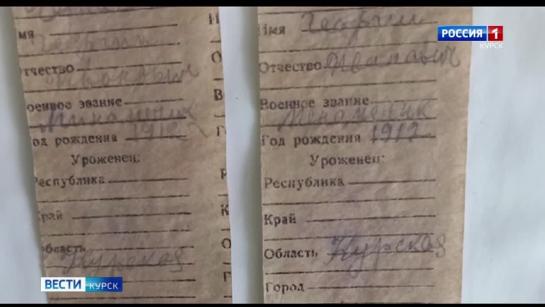 РОССИЯ 1
КУРСК
мя
Георгий
Отчество
Иванович
Военное звание
Год рождения 1912
Уроженец:
Республика
Край
Область
Курская
Имя Георгий
Отчество Иванович
Военное звание
Год рождения 1912
Уроженец:
Республика
Край
Область Курская
Город
ВЕСТИ КУРСК